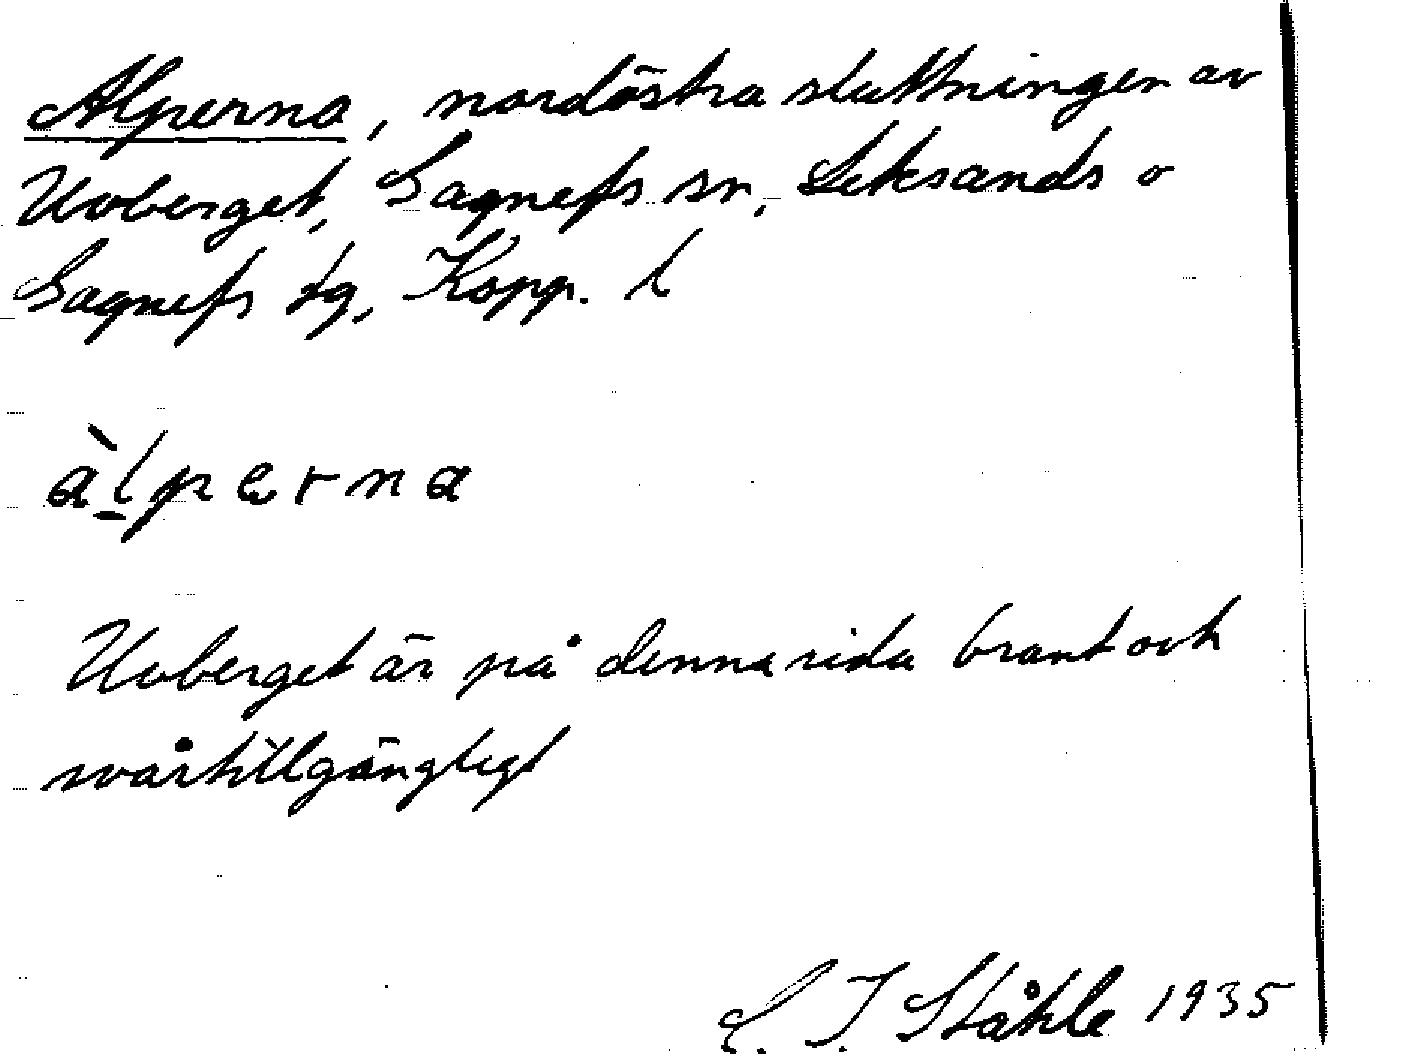 Alperna, nordöstra sluttningen av
Uvberget, Gagnefs sn, Leksands o
Gagnefs tg, Kopp. l
àlperna
Uvberget är på denna sida brant och
svårtillgängligt
C. I. Ståhle 1935